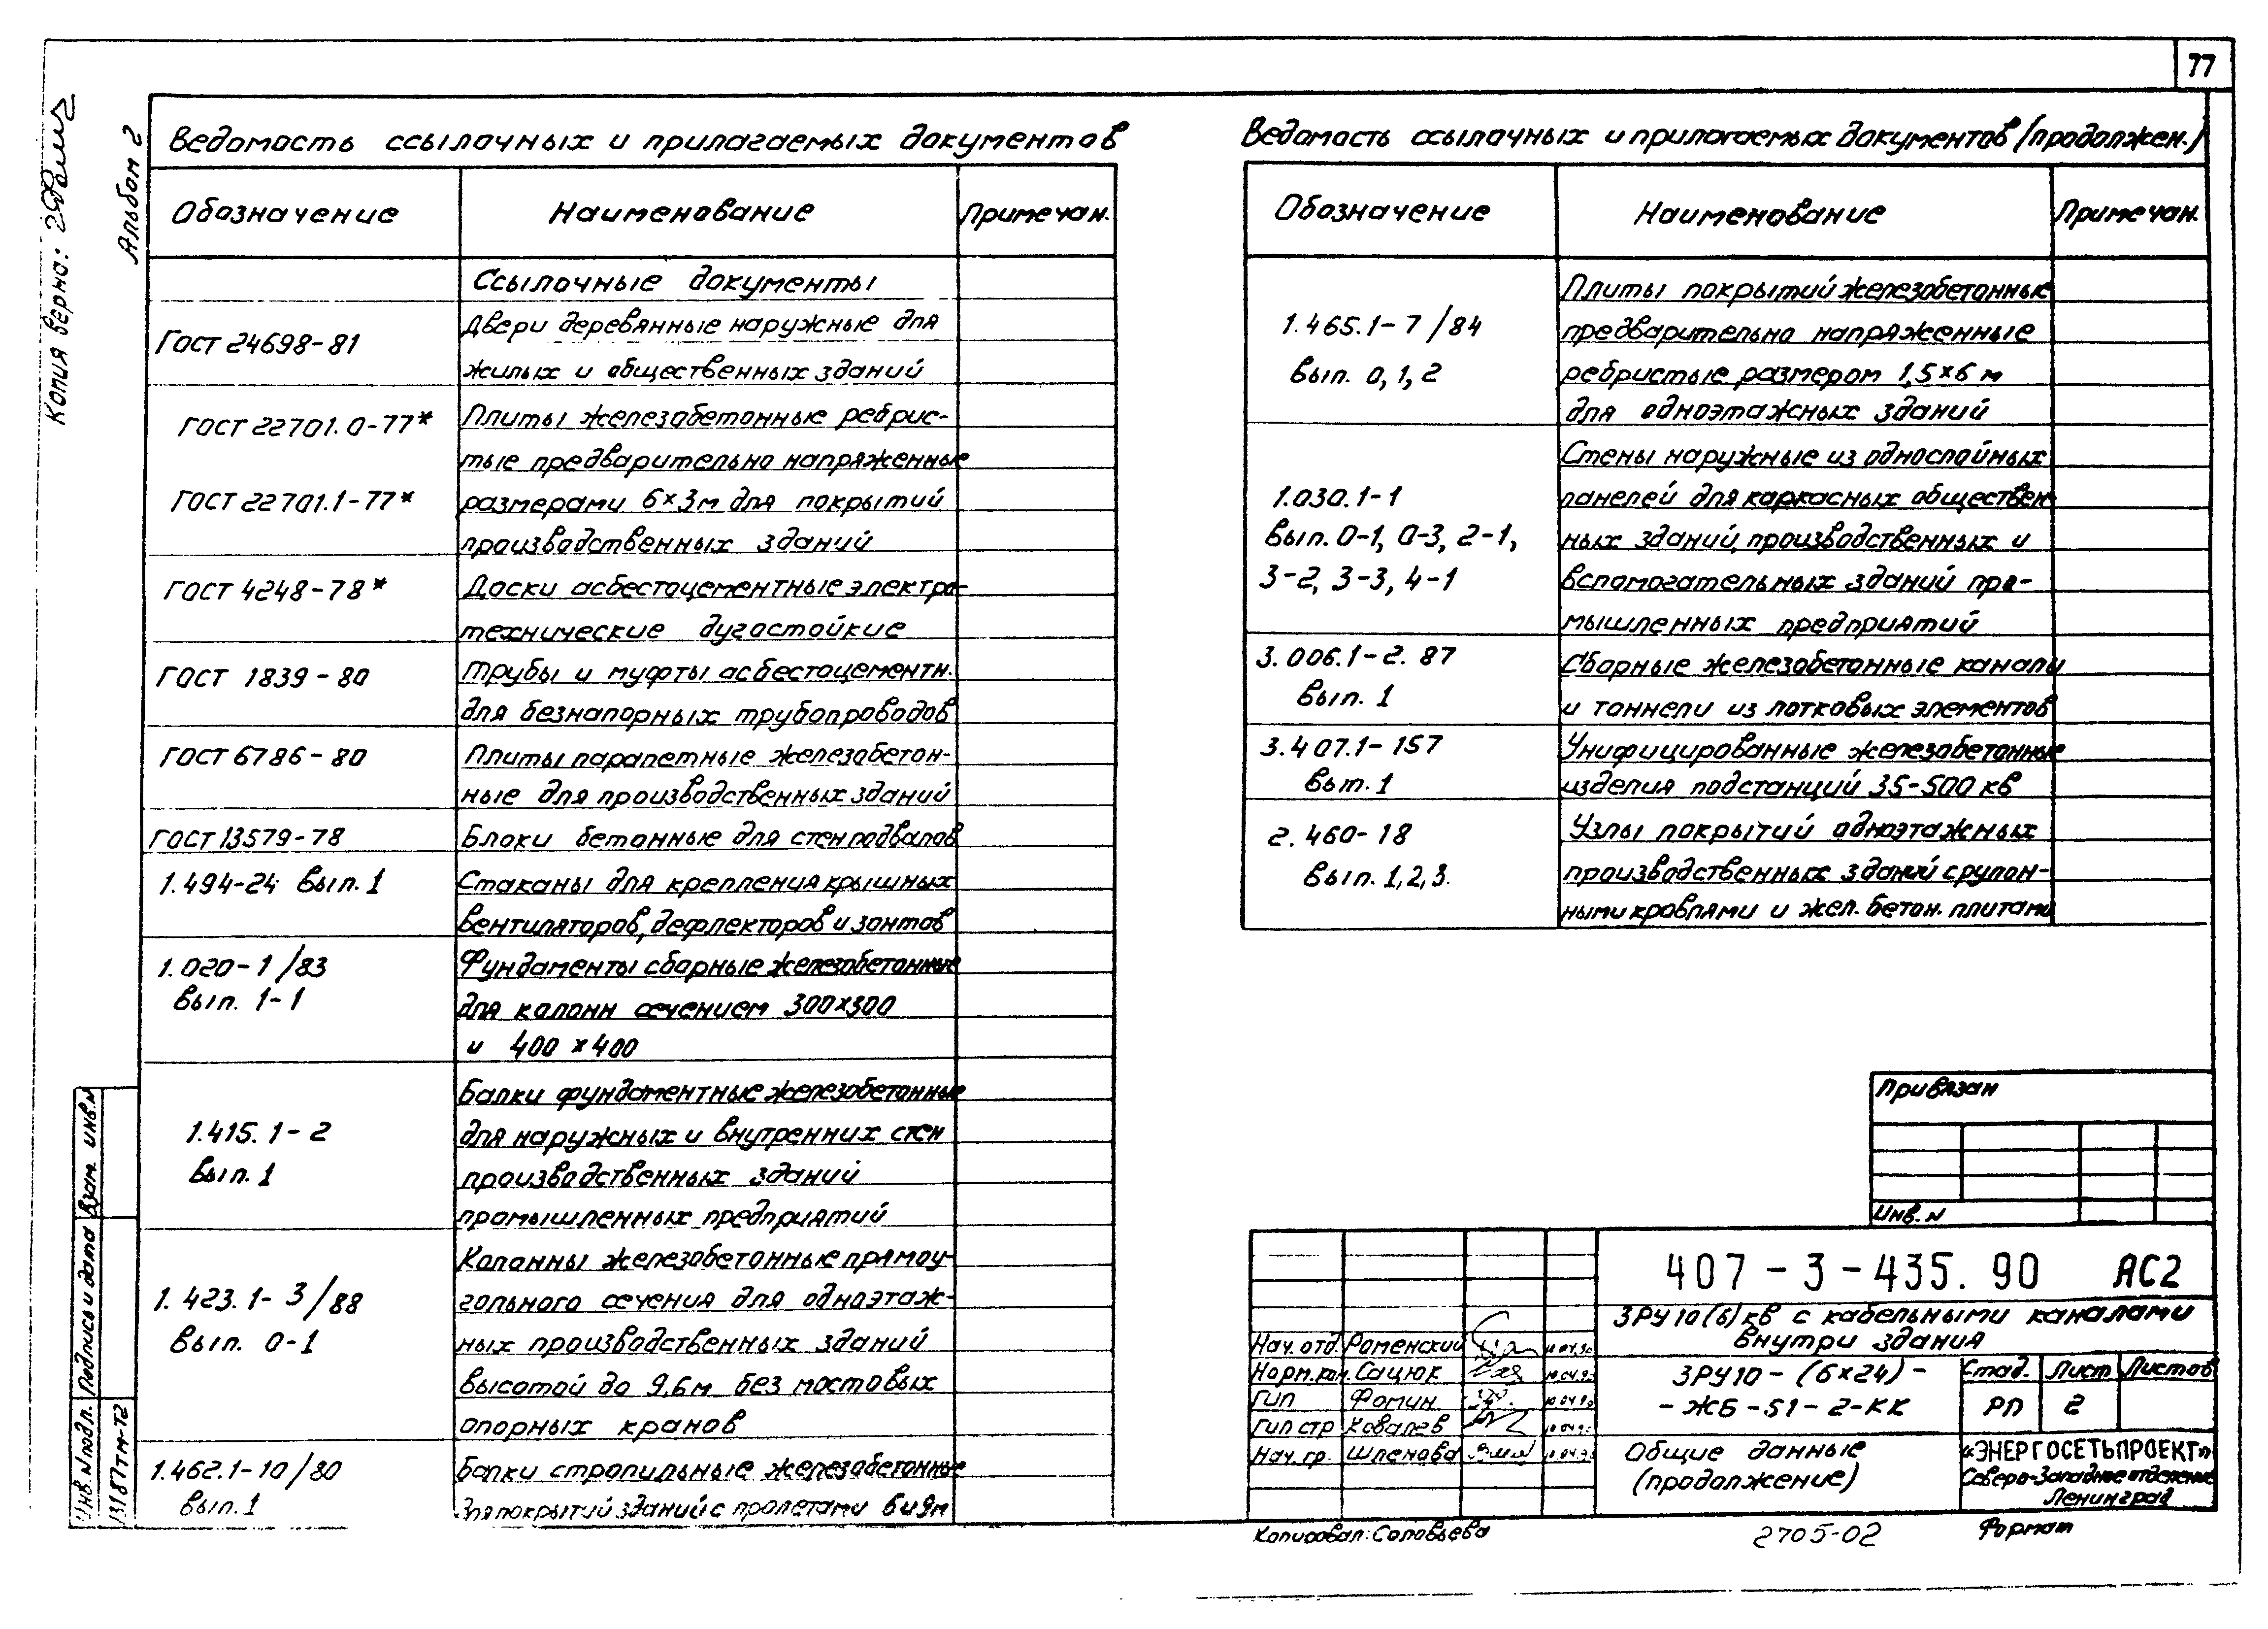 77
Копия верна:
Альбом 2
Ведомость ссылочных и прилагаемых документов
Обозначение Наименование Примечан.
Ссылочные документы
ГОСТ 24698-81 Двери деревянные наружные для
жилых и общественных зданий
ГОСТ 22701.0-77* Плиты железобетонные ребрис-
тые предварительно напряженные
ГОСТ 22701.1-77* размерами 6×3м для покрытий
производственных зданий
ГОСТ 4248-78* Доски асбестоцементные электро-
технические дугостойкие
ГОСТ 1839-80 Трубы и муфты асбестоцементн.
для безнапорных трубопроводов
ГОСТ 6786-80 Плиты парапетные железобетон-
ные для производственных зданий
ГОСТ 13579-78 Блоки бетонные для стен подвалов
1.494-24 вып.1 Стаканы для крепления крышных
вентиляторов, дефлекторов и зонтов
1.020-1/83 Фундаменты сборные железобетонные
вып. 1-1 для колонн сечением 300×300
и 400×400
Балки фундаментные железобетонные
1.415.1-2 для наружных и внутренних стен
вып.1 производственных зданий
промышленных предприятий
Колонны железобетонные прямоу-
1.423.1-3/88 гольного сечения для одноэтаж-
вып. 0-1 ных производственных зданий
высотой до 9,6м без мостовых
опорных кранов
1.462.1-10/80 Балки стропильные железобетонные
вып.1 для покрытий зданий с пролетами 6 и 9м
Ведомость ссылочных и прилагаемых документов (продолжен.)
Обозначение Наименование Примечан.
Плиты покрытий железобетонные
1.465.1-7/84 предварительно напряженные
вып. 0,1,2 ребристые размером 1,5×6 м
для одноэтажных зданий
Стены наружные из однослойных
1.030.1-1 панелей для каркасных обществен-
вып. 0-1, 0-3, 2-1, ных зданий, производственных и
3-2, 3-3, 4-1 вспомогательных зданий про-
мышленных предприятий
3.006.1-2.87 Сборные железобетонные каналы
вып. 1 и тоннели из лотковых элементов
3.407.1-157 Унифицированные железобетонные
вып.1 изделия подстанций 35-500 кв
2.460-18 Узлы покрытий одноэтажных
вып. 1,2,3. производственных зданий с рулон-
ными кровлями и жел. бетон. плитами
Привязан
Инв. N
407-3-435.90 АС2
ЗРУ 10(6) кв с кабельными каналами
внутри здания
Нач. отд. Раменский 10.04.90
Норм.кон. Сацюк 10.04.90
ГИП Фомин 10.04.90
ГИП стр Ковалев 10.04.90
Нач. гр. Шленова 10.04.90
ЗРУ10-(6×24)-
-ЖБ-51-2-КК
Стад. Лист Листов
РП 2
Общие данные
(продолжение)
«ЭНЕРГОСЕТЬПРОЕКТ»
Северо-Западное отделение
Ленинград
Взам. инв. N
Подпись и дата
Инв. N подл.
13187тм-т2
Копировал: Соловьева
2705-02
Формат